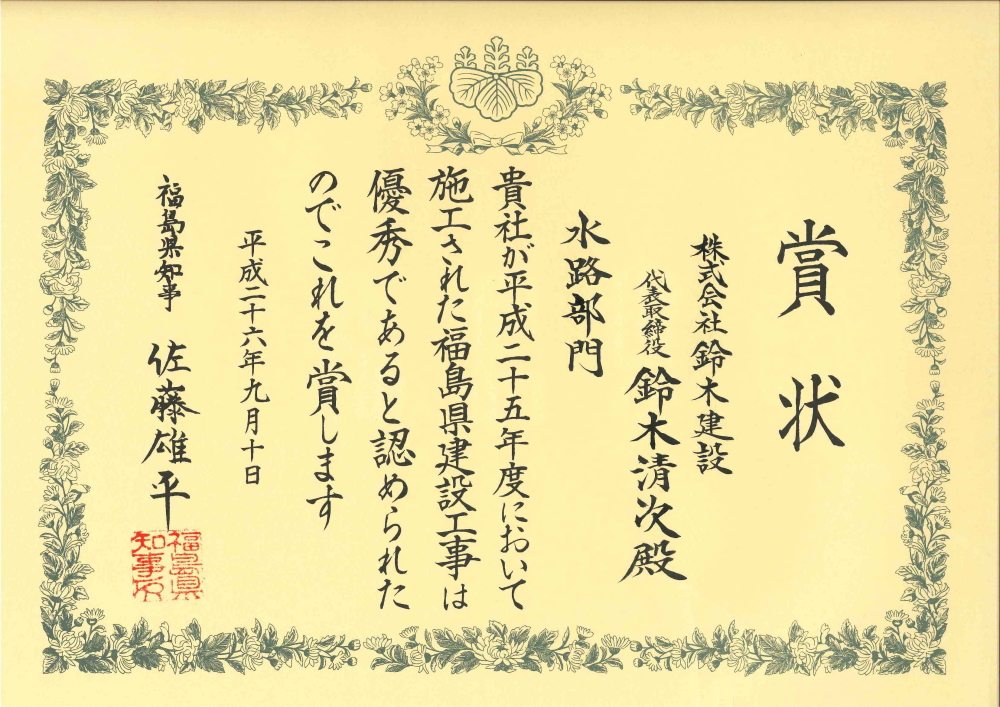 賞状
株式会社鈴木建設
代表取締役 鈴木清次殿
水路部門
貴社が平成二十五年度において
施工された福島県建設工事は
優秀であると認められた
のでこれを賞します
平成二十六年九月十日
福島県知事 佐藤雄平
福島県
知事之印